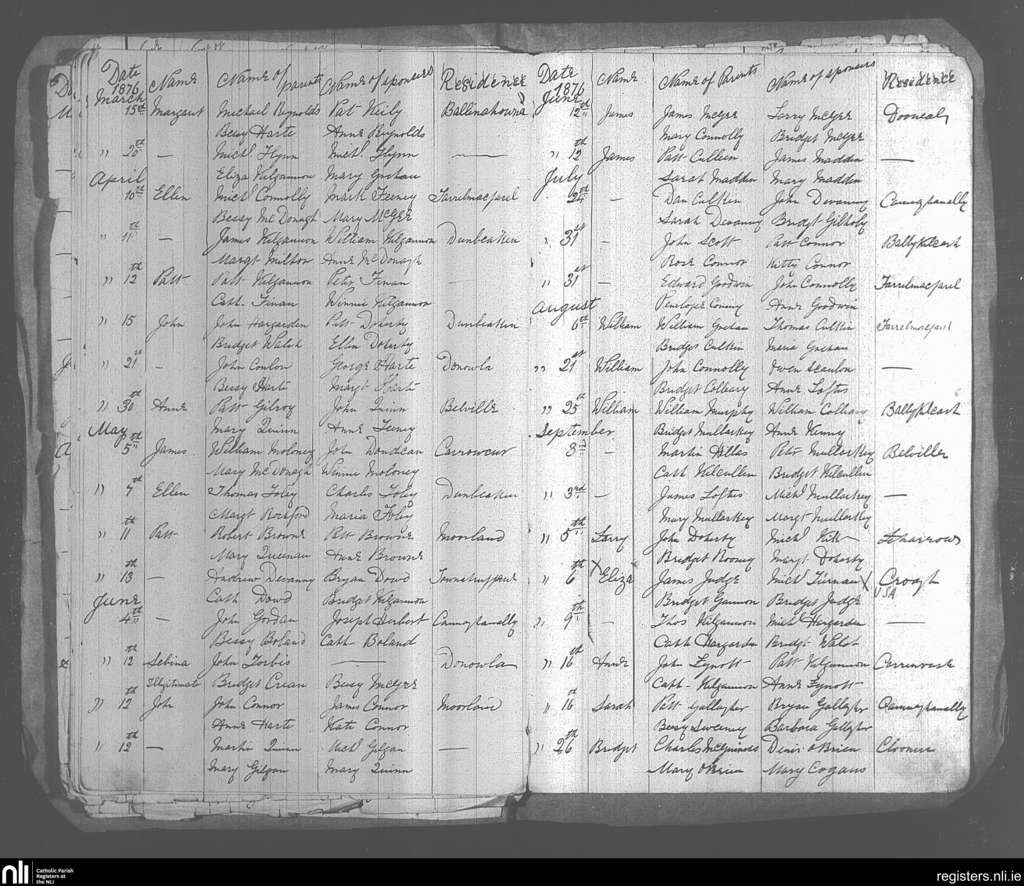 Date Name Name of parents Name of sponsors Residence
1876
March
15th Margaret Michael Reynolds Pat Kiely Ballinahowna
Bessy Harte Anne Reynolds
" 20th — Michl Flynn Michl Flynn —
Eliza Kilgannon Mary Grehan
April
10th Ellen Michl Connolly Mark Feeney Farrelmacfarrel
Bessy McDonagh Mary McGee
" 11th — James Kilgannon William Kilgannon Dunbeaken
Margt Anne McDonagh
" 12th Patt Patt Kilgannon Peter Finan —
Cath. Finan Winnie Kilgannon
" 15 John John Hargarden Patt Doherty Dunbeaken
Bridget Walsh Ellen Doherty
" 21st — John Conlon George Harte Donowla
Bessy Harte Margt Harte
" 30th Anne Patt Gilroy John Quinn Belville
Mary Quinn Anne Feeney
May
5th James William Moloney John Carrowcur
Mary McDonagh Winnie Moloney
" 7th Ellen Thomas Foley Charles Foley Dunbeaken
Margt Rochford Maria Foley
" 11th Patt Robert Browne Patt Browne Moorland
Mary Anne Browne
" 13 — Andrew Devanny Bryan Dowd
Cath Dowd Bridget Kilgannon
June
4th — John Gordan Joseph Herbert Cannaghanally
Bessy Boland Cath Boland
" 12 Sebina John Forbis — Donowla
Illegitimate Bridget Crean Bessy McGee
" 12th John John Connor James Connor
Anne Harte Kate Connor
" 12th — Martin Quinn Michl Gilgan —
Mary Gilgan Mary Quinn
Date Name Name of Parents Name of sponsors Residence
1876
June
12th James James McGee Larry McGee Dooneal
Mary Connolly Bridget McGee
" 12th James Patt Culleen James Madden —
Sarah Madden Mary Madden
July
24th — Dan Culkin John Devanny Cannaghanally
Sarah Devanny Bridget Gilhooly
" 31st — John Scott Patt Connor Ballykilcash
Rose Connor Kitty Connor
" 31st — Edward Goodwin John Connolly Farrelmacfarrel
Penelope Anne Goodwin
August
6th William William Grehan Thomas Culkin Farrelmacfarrel
Bridget Culkin Maria Grehan
" 21st William John Connolly Owen Scanlon —
Bridget Colleary Anne Loftus
" 25th William William Murphy William Colleary Ballykilcash
Bridget Mullarkey Anne Kenny
September
3rd — Martin Peter Mullarkey Belville
Cath Kilcullen Bridget Kilcullen
" 3rd — James Loftus Michl Mullarkey —
Mary Mullarkey Margt Mullarkey
" 5th Larry John Doherty Michl
Bridget Rooney Margt Doherty
" 6th X Eliza James Judge Michl Tiernan X Croagh
USA
Bridget Gannon Bridget Judge
" 9th — Thos Kilgannon Michl Hargarden —
Cath Hargarden Bridget Walsh
" 16th Anne John Lynott Patt Kilgannon
Cath Kilgannon Anne Lynott
" 16th Sarah Patt Gallagher Bryan Gallagher Cannaghanally
Bessy Sweeney Barbara Gallagher
" 26th Bridget Charles McGuinness Denis O'Brien Clooneen
Mary O'Brien Mary Cogans
nli Catholic Parish Registers at the NLI
registers.nli.ie